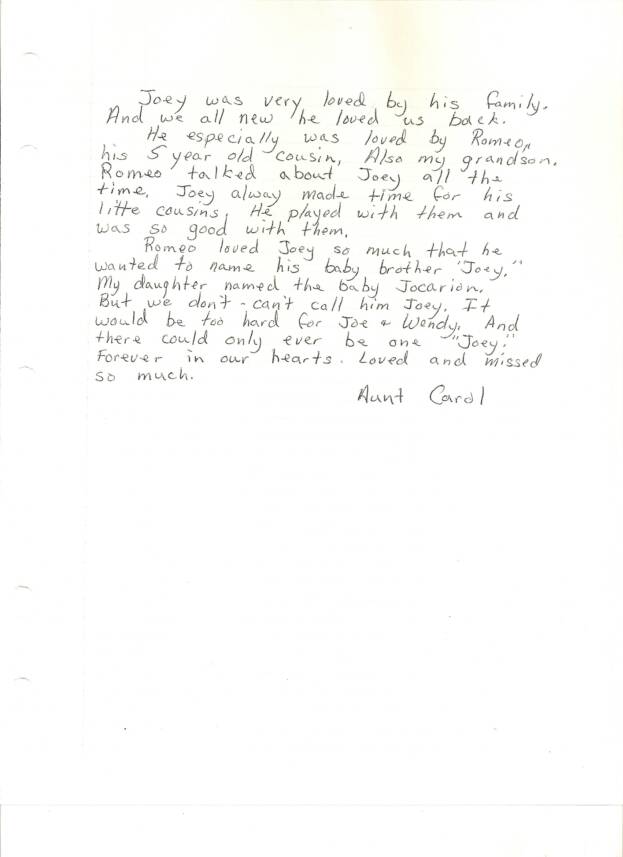 Joey was very loved by his family.
And we all new he loved us back.
He especially was loved by Romeo,
his 5 year old cousin, Also my grandson.
Romeo talked about Joey all the
time. Joey alway made time for his
little cousins. He played with them and
was so good with them.
Romeo loved Joey so much that he
wanted to name his baby brother "Joey."
My daughter named the baby Jocarion.
But we don't - can't call him Joey. It
would be too hard for Joe & Wendy. And
there could only ever be one "Joey."
Forever in our hearts. Loved and missed
so much.
Aunt Carol